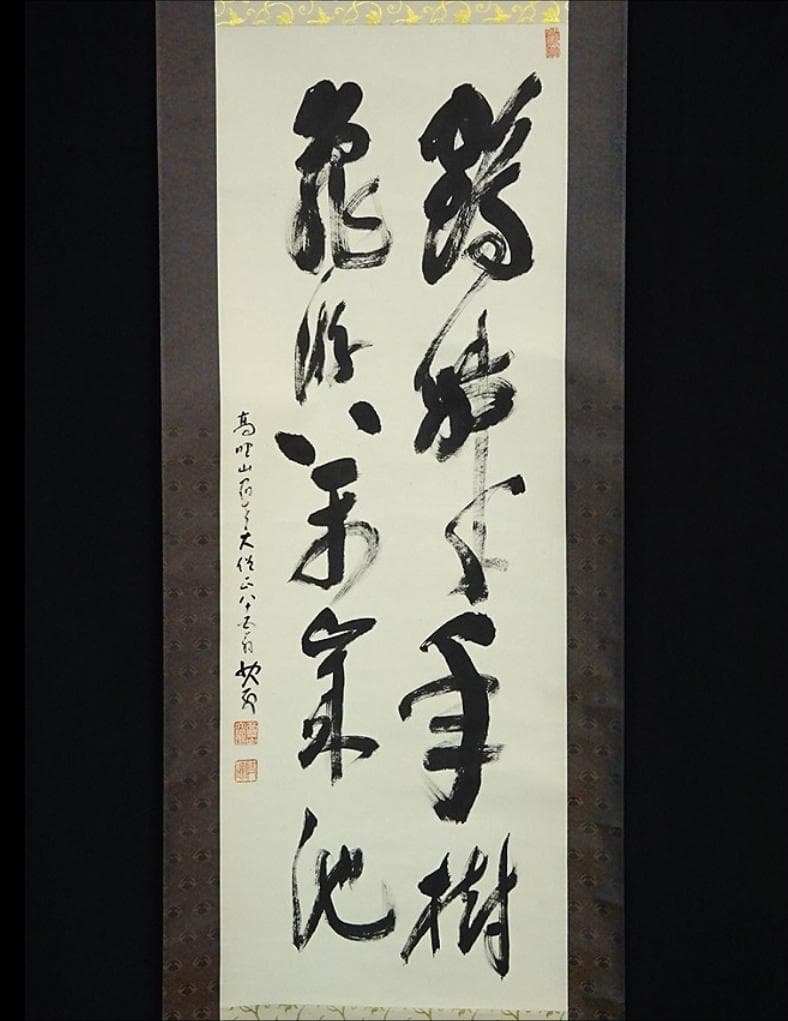 鶴舞千年樹
龜游萬歳池
高野山 大僧正八十五翁